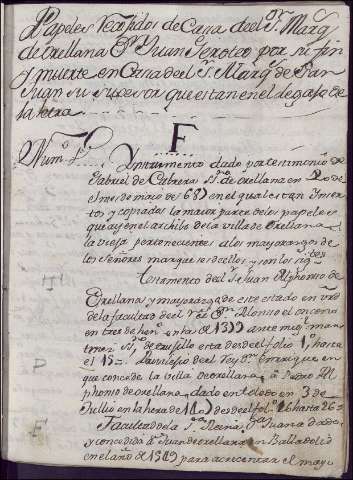 Papeles Recojidos de Casa deel S.r Marq.s
de orellana D.n Juan Pizarro por su fin
y muerte en Casa de el S.r Marq.s de San
Juan su subcesor que estan en el legajo de
la letra
F
Num.o 1.o
Ynstrumento dado por testimonio de
Gabriel de Cabrera ss.no de orellana en 20 de
el mes de março de 687 en el qual estan Ynser
tos y copiados la maior parte de los papeles
que ay en el archibo de la villa de orellana
la vieja pertenecientes a los mayorazgos de
los señores marqueses de ellos y son los sig.tes
testamento de el S.r Juan Alphonso de
Orellana y mayorazgo de este estado en
de la facultad de el Rey D.n Alonso el onceno
en tres de hen.o
de trusillo esta desde el folio 1.o hasta
el 15 = Prebilesio de el Rey D.n Enrrique en
que concede la villa de orellana a Pedro Al
phonso de orellana, dado en toledo en 3 de
Jullio en la hera de desde el fol.o 16 hasta 26=
Facultad de la S.ra Reina D.a Juana dada,
y concedida a Juan de orellana en Balladolid
en el año de 1509 para acrecentar el mayo